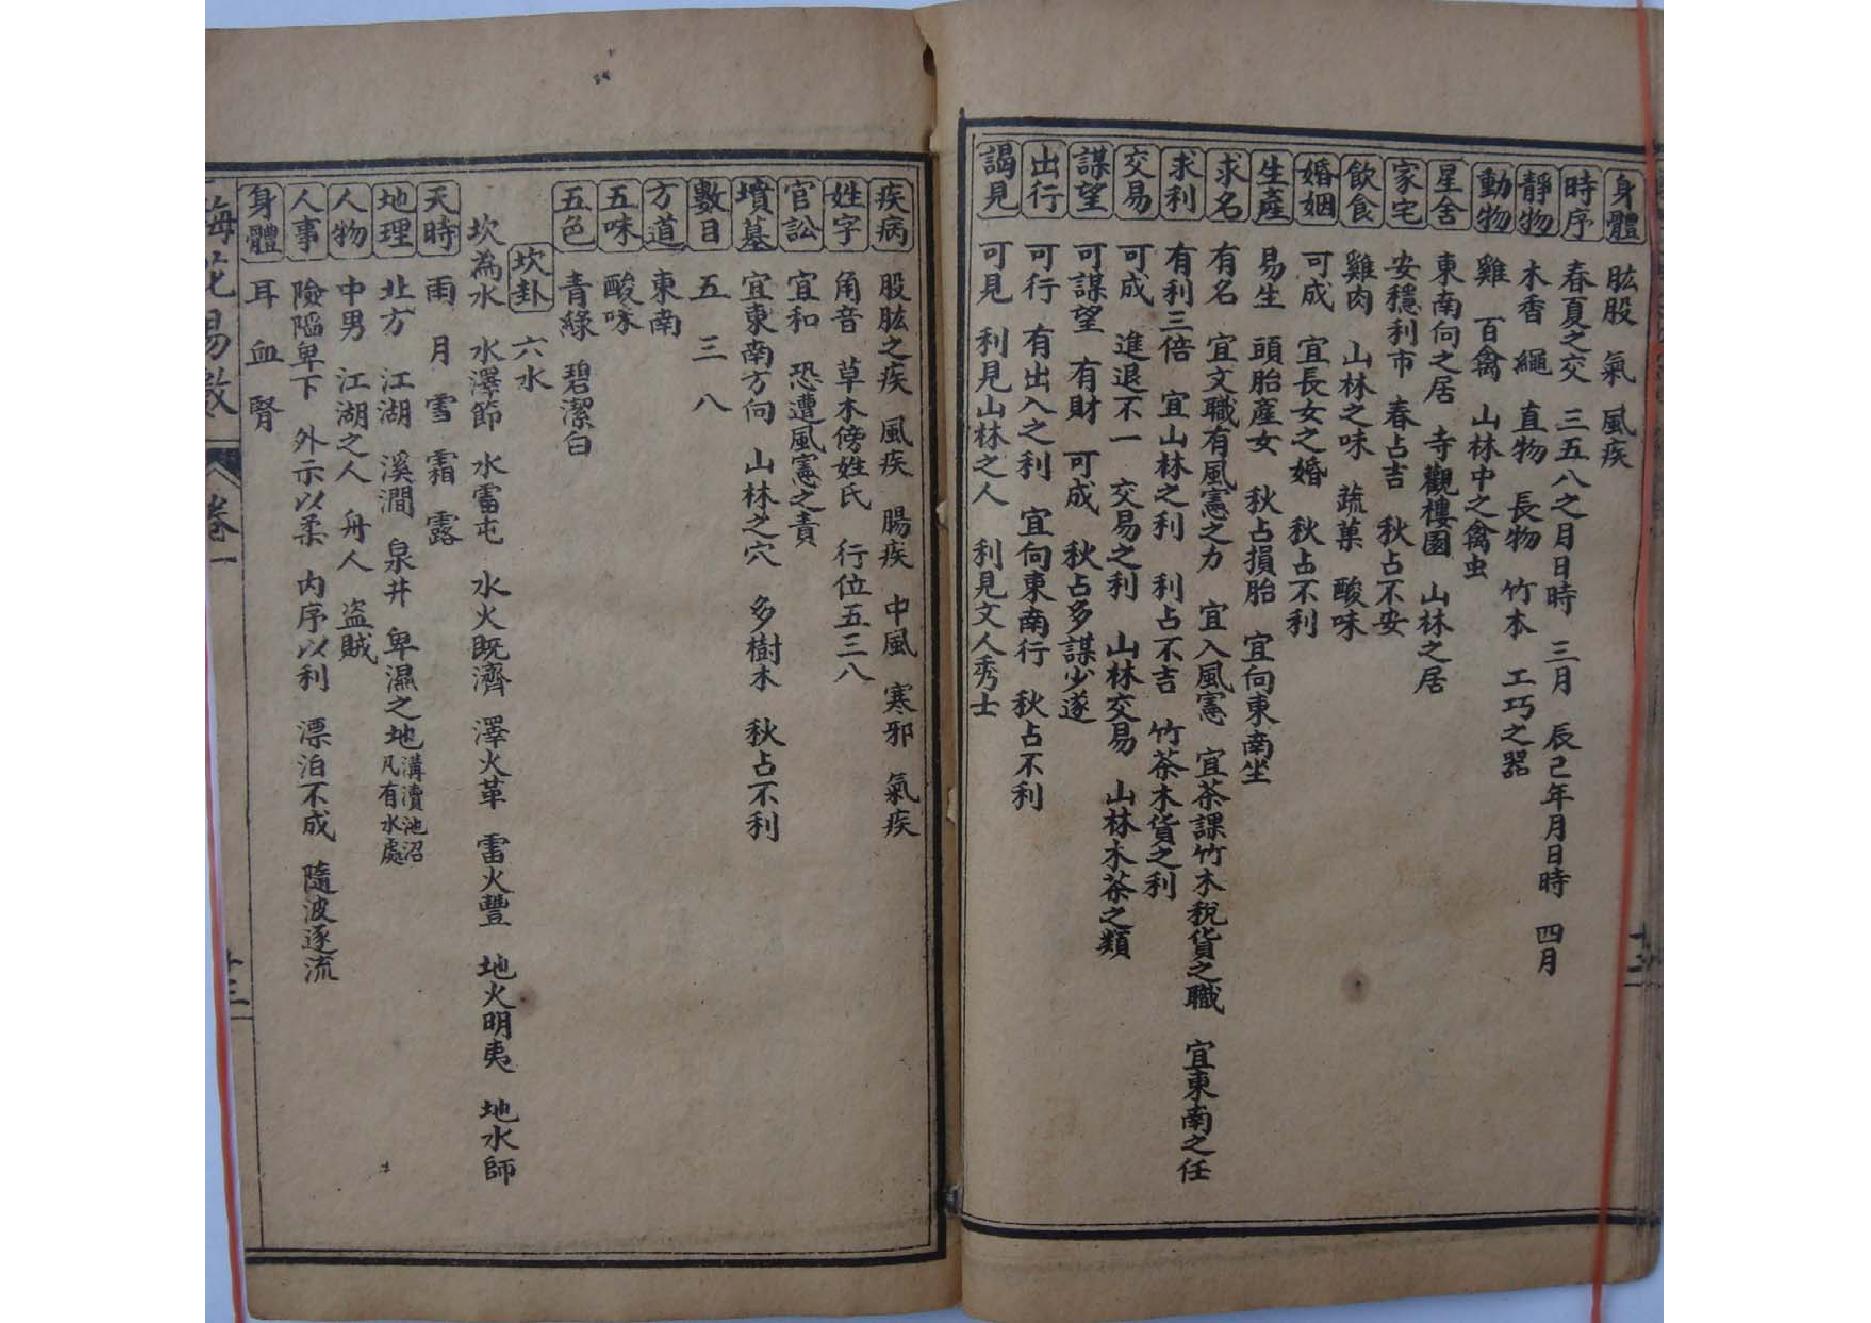 身體 肱股 氣 風疾
時序 春夏之交 三五八之月日時 三月 辰巳年月日時 四月
靜物 木香 繩 直物 長物 竹木 工巧之器
動物 雞 百禽 山林中之禽虫
星舍 東南向之居 寺觀樓園 山林之居
家宅 安穩利市 春占吉 秋占不安
飲食 雞肉 山林之味 蔬菓 酸味
婚姻 可成 宜長女之婚 秋占不利
生產 易生 頭胎產女 秋占損胎 宜向東南坐
求名 有名 宜文職有風憲之力 宜入風憲 宜茶課竹木稅貨之職 宜東南之任
求利 有利三倍 宜山林之利 利占不吉 竹茶木貨之利
交易 可成 進退不一 交易之利 山林交易 山林木茶之類
謀望 可謀望 有財 可成 秋占多謀少遂
出行 可行 有出入之利 宜向東南行 秋占不利
謁見 可見 利見山林之人 利見文人秀士
疾病 股肱之疾 風疾 腸疾 中風 寒邪 氣疾
姓字 角音 草木傍姓氏 行位五三八
官訟 宜和 恐遭風憲之責
墳墓 宜東南方向 山林之穴 多樹木 秋占不利
數目 五 三 八
方道 東南
五味 酸味
五色 青綠 碧潔白
坎卦 六水
坎為水 水澤節 水雷屯 水火既濟 澤火革 雷火豐 地火明夷 地水師
天時 雨 月 雪 霜 露
地理 北方 江湖 溪澗 泉井 卑濕之地 溝瀆池沼凡有水處
人物 中男 江湖之人 舟人 盜賊
人事 險陷卑下 外示以柔 內序以利 漂泊不成 隨波逐流
身體 耳 血 腎
梅花易數 卷一 十三